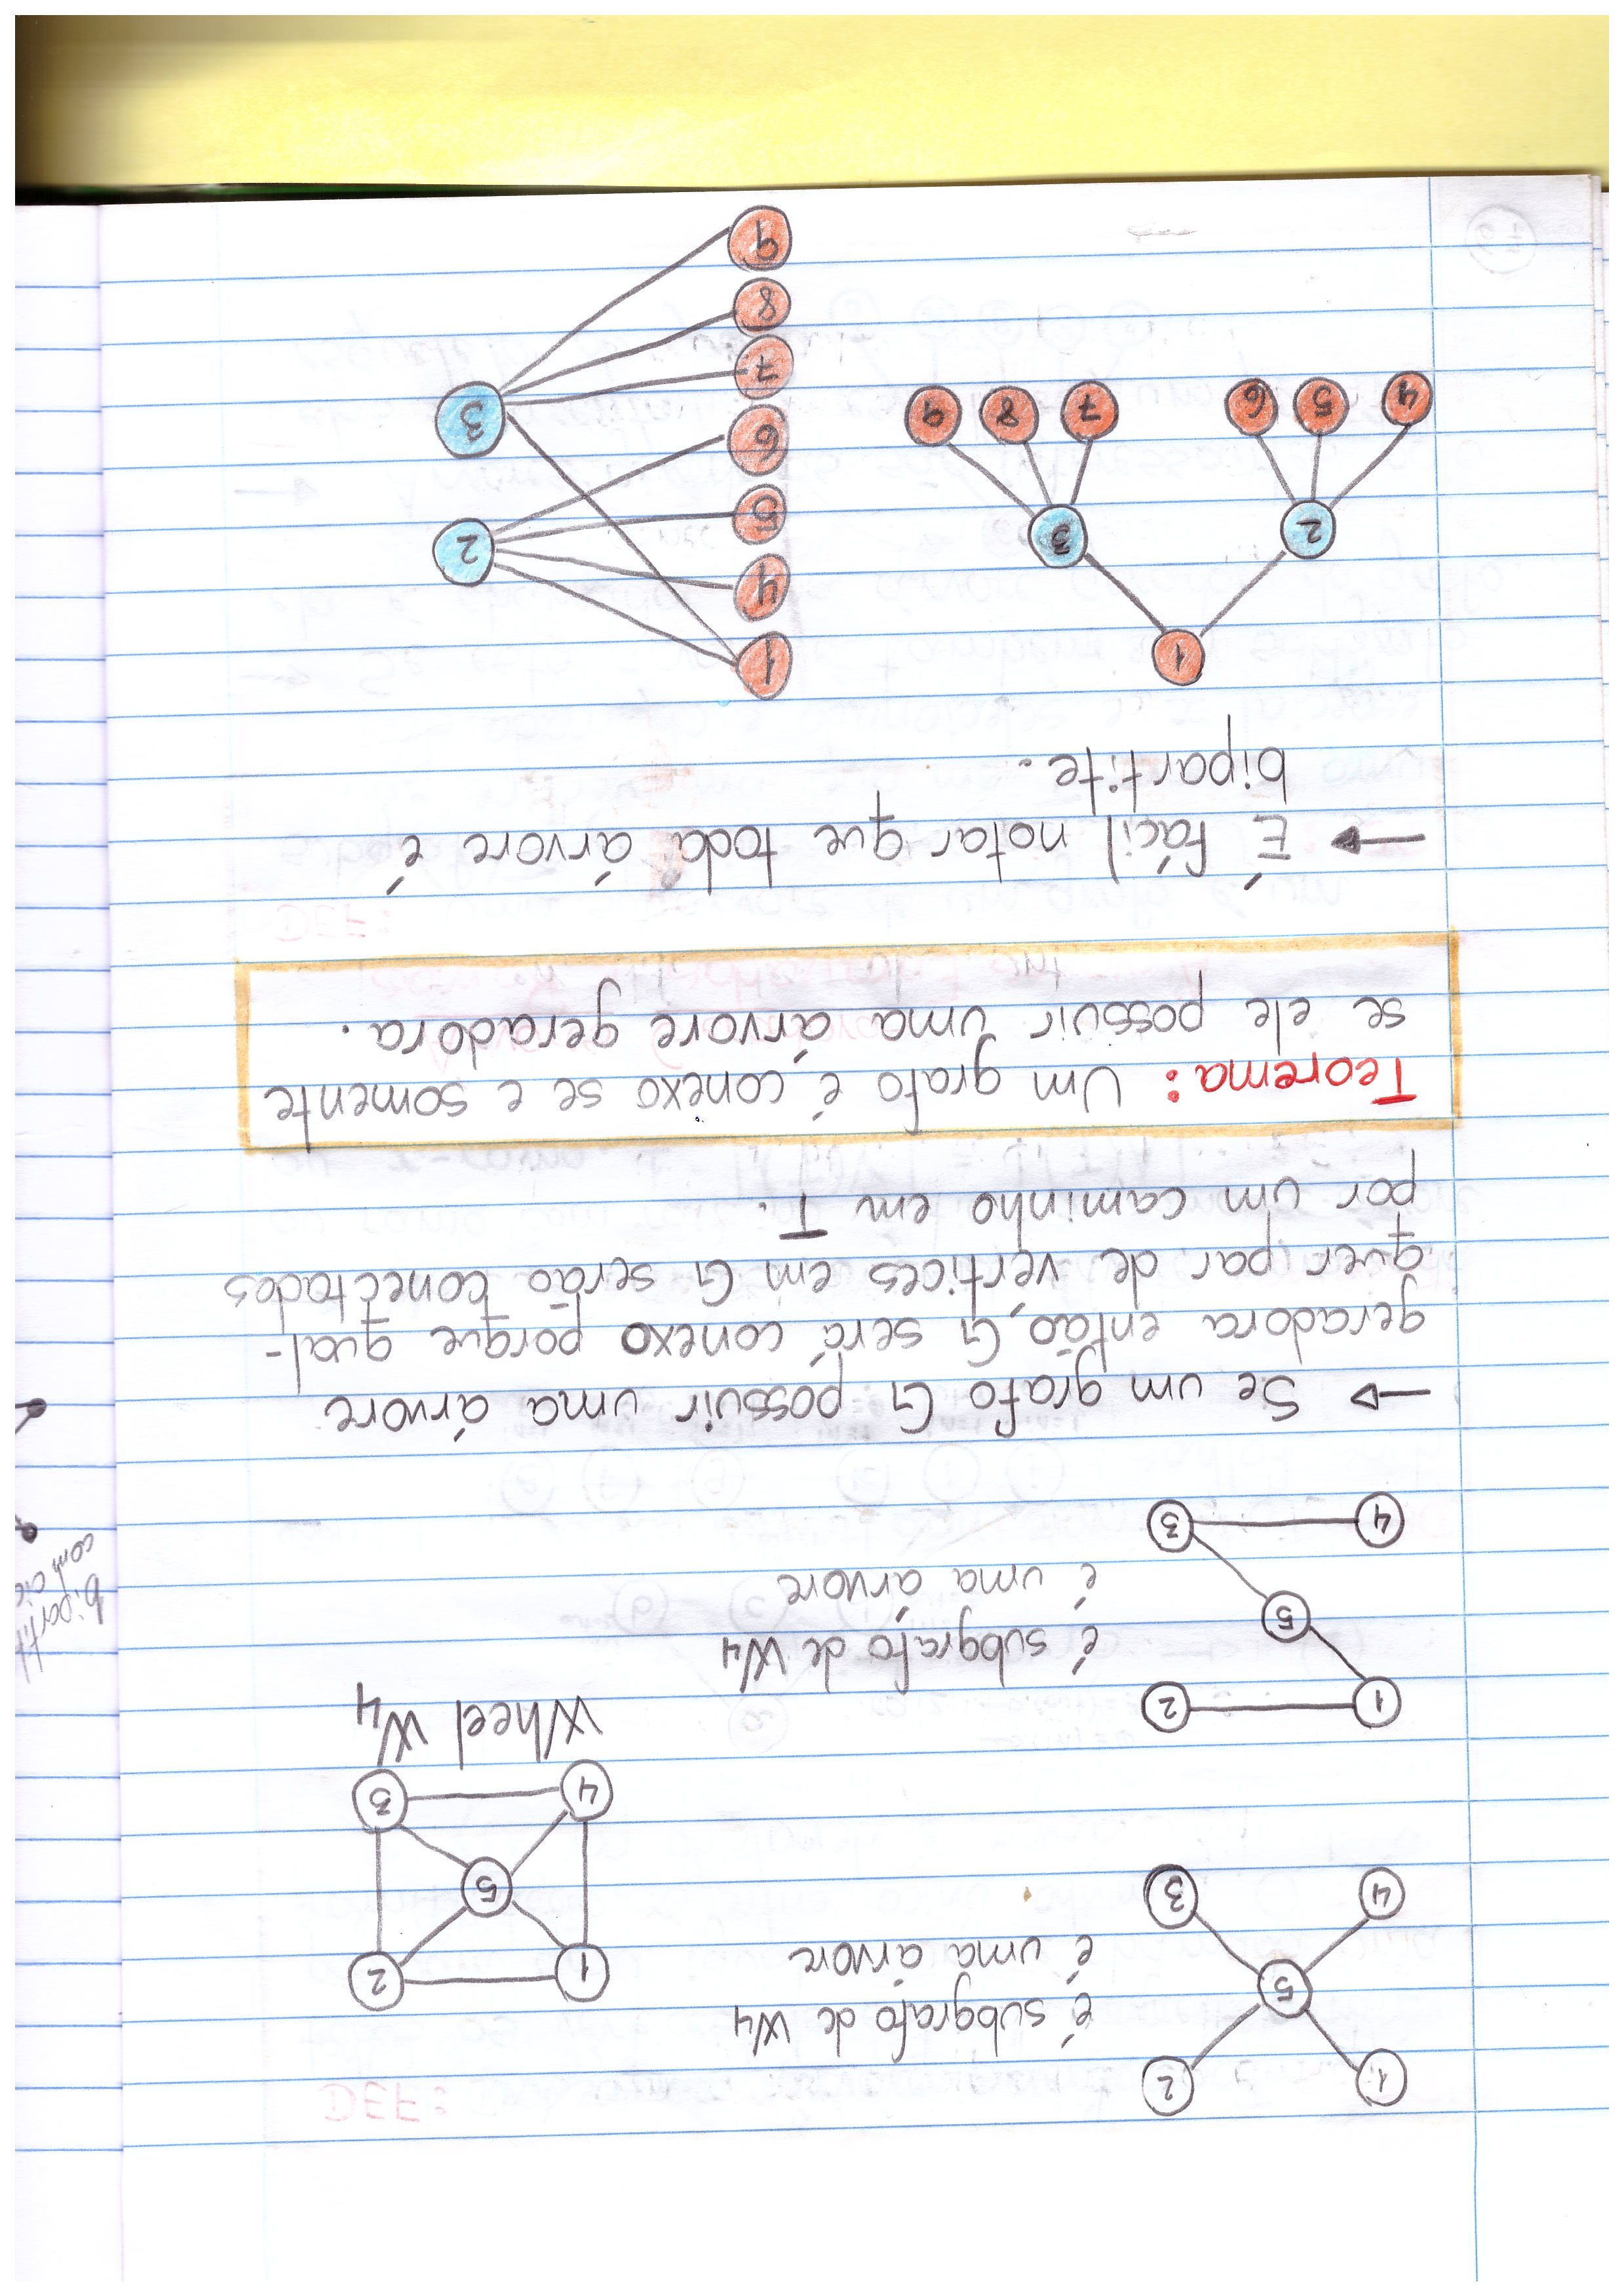 1 2
5
4 3
é subgrafo de W4
é uma árvore
1 2
5
4 3
Wheel W4
1 2
5
4 3
é subgrafo de W4
é uma árvore
→ Se um grafo G possuir uma árvore
geradora então G será conexo porque qual-
quer par de vértices em G serão conectados
por um caminho em T.
Teorema: Um grafo é conexo se e somente
se ele possuir uma árvore geradora.
→ É fácil notar que toda árvore é
bipartite.
1
2 3
4 5 6 7 8 9
1
4
5
6
7
8
9
2
3